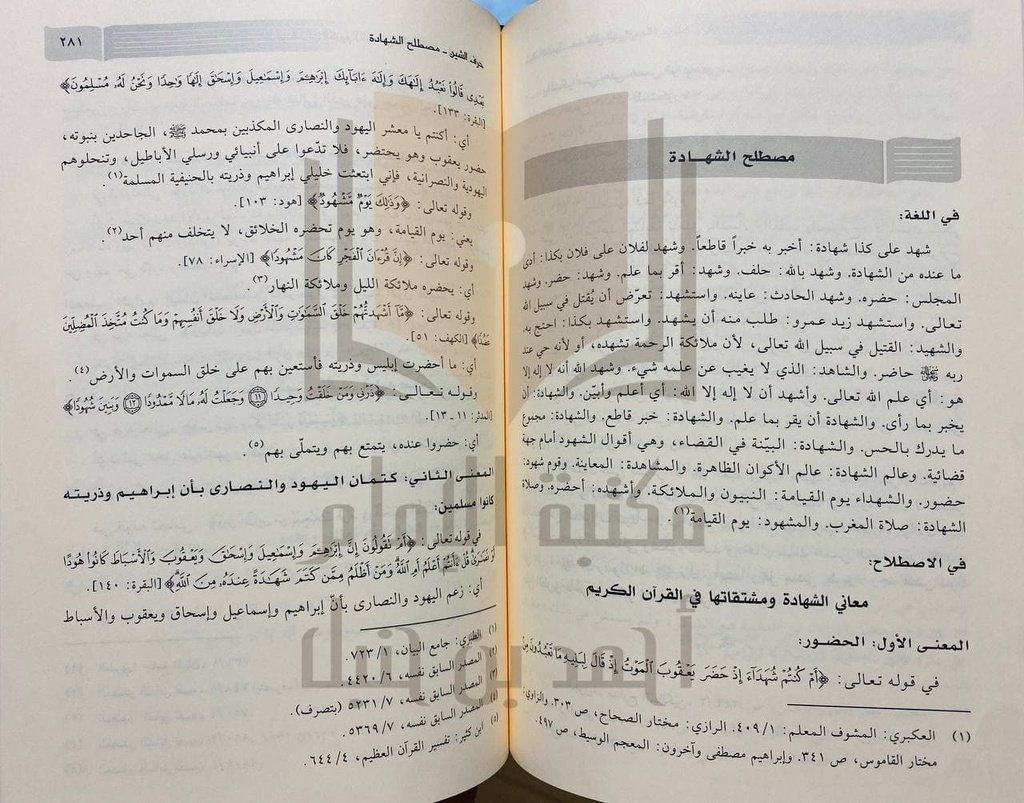 مصطلح الشهادة
في اللغة:
شهد على كذا شهادة: أخبر به خبراً قاطعاً. وشهد لفلان على فلان بكذا: أدى
ما عنده من الشهادة. وشهد بالله: حلف. وشهد: أقر بما علم. وشهد: حضر. وشهد
المجلس: حضره. وشهد الحادث: عاينه. واستشهد: تعرّض أن يُقتل في سبيل الله
تعالى. واستشهد زيد عمرو: طلب منه أن يشهد. واستشهد بكذا: احتج به.
والشهيد: القتيل في سبيل الله تعالى، لأن ملائكة الرحمة تشهده، أو لأنه حي عند
ربه ﷺ حاضر. والشاهد: الذي لا يغيب عن علمه شيء. وشهد الله أنه لا إله إلا
هو: أي علم الله تعالى. وأشهد أن لا إله إلا الله: أي أعلم وأبيّن. والشهادة: أن
يخبر بما رأى. والشهادة أن يقر بما علم. والشهادة: خبر قاطع. والشهادة: مجموع
ما يدرك بالحس. والشهادة: البيّنة في القضاء، وهي أقوال الشهود أمام جهة
قضائية. وعالم الشهادة: عالم الأكوان الظاهرة. والمشاهدة: المعاينة. وقوم شهود:
حضور. والشهداء يوم القيامة: النبيون والملائكة. وأشهده: أحضره. وصلاة
الشهادة: صلاة المغرب. والمشهود: يوم القيامة(١).
في الاصطلاح:
معاني الشهادة ومشتقاتها في القرآن الكريم
المعنى الأول: الحضور:
في قوله تعالى: ﴿أَمْ كُنتُمْ شُهَدَآءَ إِذْ حَضَرَ يَعْقُوبَ الْمَوْتُ إِذْ قَالَ لِبَنِيهِ مَا تَعْبُدُونَ مِنْ
(١) العكبري: المشوف المعلم: ٤٠٩/١. الرازي: مختار الصحاح، ص ٣٠٣. والزاوي:
مختار القاموس، ص ٣٤١. وإبراهيم مصطفى وآخرون: المعجم الوسيط، ص ٤٩٧.
حرف الشين - مصطلح الشهادة
٢٨١
بَعْدِى قَالُوا نَعْبُدُ إِلَٰهَكَ وَإِلَٰهَ ءَابَآئِكَ إِبْرَٰهِيمَ وَإِسْمَٰعِيلَ وَإِسْحَٰقَ إِلَٰهًا وَٰحِدًا وَنَحْنُ لَهُۥ مُسْلِمُونَ﴾
[البقرة: ١٣٣].
أي: أكنتم يا معشر اليهود والنصارى المكذبين بمحمد ﷺ، الجاحدين بنبوته،
حضور يعقوب وهو يحتضر، فلا تدّعوا على أنبيائي ورسلي الأباطيل، وتنحلوهم
اليهودية والنصرانية، فإني ابتعثت خليلي إبراهيم وذريته بالحنيفية المسلمة(١).
وقوله تعالى: ﴿وَذَٰلِكَ يَوْمٌ مَّشْهُودٌ﴾ [هود: ١٠٣].
يعني: يوم القيامة، وهو يوم تحضره الخلائق، لا يتخلف منهم أحد(٢).
وقوله تعالى: ﴿إِنَّ قُرْءَانَ الْفَجْرِ كَانَ مَشْهُودًا﴾ [الإسراء: ٧٨].
أي: يحضره ملائكة الليل وملائكة النهار(٣).
وقوله تعالى: ﴿مَّآ أَشْهَدتُّهُمْ خَلْقَ السَّمَٰوَٰتِ وَالْأَرْضِ وَلَا خَلْقَ أَنفُسِهِمْ وَمَا كُنتُ مُتَّخِذَ الْمُضِلِّينَ
عَضُدًا﴾ [الكهف: ٥١].
أي: ما أحضرت إبليس وذريته فأستعين بهم على خلق السموات والأرض(٤).
وقوله تعالى: ﴿ذَرْنِى وَمَنْ خَلَقْتُ وَحِيدًا ۝١١ وَجَعَلْتُ لَهُۥ مَالًا مَّمْدُودًا ۝١٢ وَبَنِينَ شُهُودًا﴾
[المدثر: ١١ ـ ١٣].
أي: حضروا عنده، يتمتع بهم ويتملّى بهم(٥).
المعنى الثاني: كتمان اليهود والنصارى بأن إبراهيم وذريته
كانوا مسلمين:
في قوله تعالى: ﴿أَمْ تَقُولُونَ إِنَّ إِبْرَٰهِيمَ وَإِسْمَٰعِيلَ وَإِسْحَٰقَ وَيَعْقُوبَ وَالْأَسْبَاطَ كَانُوا هُودًا
أَوْ نَصَٰرَىٰ قُلْ ءَأَنتُمْ أَعْلَمُ أَمِ اللَّهُ وَمَنْ أَظْلَمُ مِمَّن كَتَمَ شَهَٰدَةً عِندَهُۥ مِنَ اللَّهِ﴾ [البقرة: ١٤٠].
أي: زعم اليهود والنصارى بأنّ إبراهيم وإسماعيل وإسحاق ويعقوب والأسباط
(١) الطبري: جامع البيان، ٧٢٣/١.
(٢) المصدر السابق نفسه، ٤٤٢٠/٦.
(٣) المصدر السابق نفسه، ٥٢٣١/٧ (بتصرف).
(٤) المصدر السابق نفسه، ٥٣٦٩/٧.
(٥) ابن كثير: تفسير القرآن العظيم، ٦٤٤/٤.
مكتبة الإمام
أحمد بن حنبل